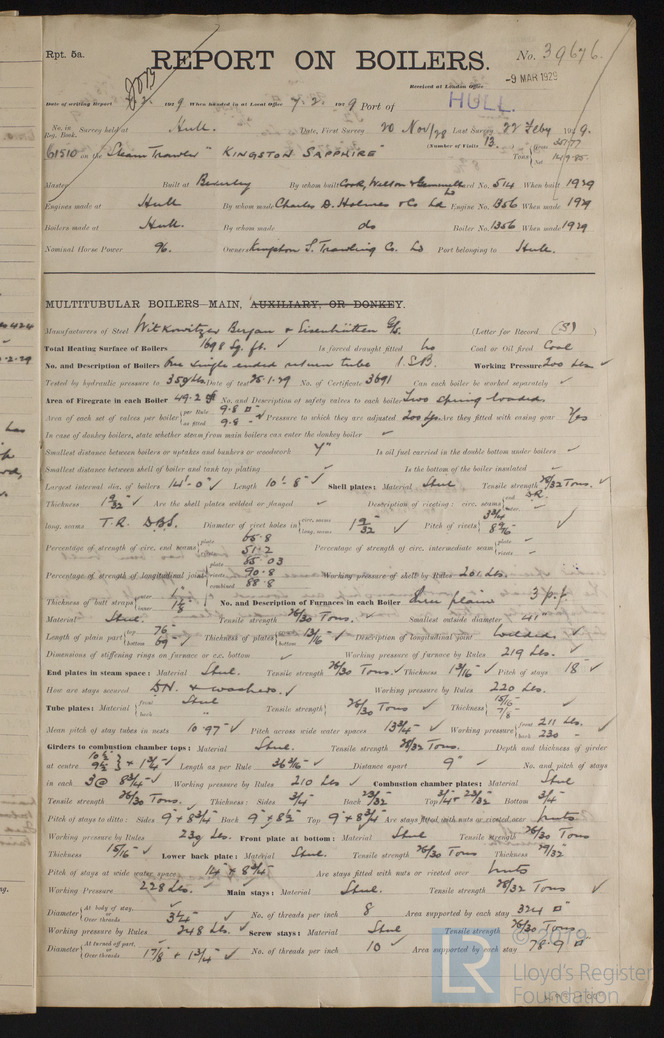 Rpt. 5a.
REPORT ON BOILERS.
No. 39676.
-9 MAR 1929
Received at London Office
HULL.
Date of writing Report 192 9 When handed in at Local Office 7.2. 192 9 Port of
No. in Reg. Book. Survey held at Hull. Date, First Survey 20 Nov/28 Last Survey 22 Feby 192 9.
(Number of Visits 13.
61510 on the Steam Trawler "KINGSTON SAPPHIRE" Tons Gross Net
Master Built at Beverley By whom built Cook, Welton & Gemmell Ld Yard No. 514 When built 1929
Engines made at Hull By whom made Charles D. Holmes & Co Ld Engine No. 1356 When made 1929
Boilers made at Hull. By whom made do Boiler No. 1356 When made 1929
Nominal Horse Power 96. Owners Kingston S. Trawling Co. Ld Port belonging to Hull.
MULTITUBULAR BOILERS—MAIN, AUXILIARY, OR DONKEY.
Manufacturers of Steel Witkowitzer Bergau & Eisenhütten (Letter for Record (S) )
Total Heating Surface of Boilers 1698 Sq. ft. ✓ Is forced draught fitted No Coal or Oil fired Coal
No. and Description of Boilers One single ended return tube 1.S.B. Working Pressure 200 Lbs ✓
Tested by hydraulic pressure to 350 Lbs. Date of test 25.1.29 No. of Certificate 3691 Can each boiler be worked separately ✓
Area of Firegrate in each Boiler 49.2 No. and Description of safety valves to each boiler Two spring loaded.
Area of each set of valves per boiler per Rule 9.8 as fitted 9.8 Pressure to which they are adjusted Are they fitted with easing gear Yes
In case of donkey boilers, state whether steam from main boilers can enter the donkey boiler
Smallest distance between boilers or uptakes and bunkers or woodwork Is oil fuel carried in the double bottom under boilers
Smallest distance between shell of boiler and tank top plating Is the bottom of the boiler insulated
Largest internal dia. of boilers 14'-0" ✓ Length 10'-8" ✓ Shell plates: Material Steel Tensile strength 28/32 Tons. ✓
Thickness 1 9/32 ✓ Are the shell plates welded or flanged Description of riveting: circ. seams end D.R. inter.
long. seams T.R. D.B.S. Diameter of rivet holes in circ. seams long. seams 1 9/32 ✓ Pitch of rivets 3 3/4 8 9/16
Percentage of strength of circ. end seams plate 65.8 rivets 51.2 Percentage of strength of circ. intermediate seam plate rivets
Percentage of strength of longitudinal joint plate 85.03 rivets 90.8 combined 88.8 Working pressure of shell by Rules 201 Lbs.
Thickness of butt straps outer 1" inner 1 1/8" No. and Description of Furnaces in each Boiler Three plain 3 p.f.
Material Steel. Tensile strength 26/30 Tons. Smallest outside diameter 41"
Length of plain part top 76" bottom 69" Thickness of plates crown bottom 13/16" Description of longitudinal joint Welded. ✓
Dimensions of stiffening rings on furnace or c.c. bottom Working pressure of furnace by Rules 219 Lbs. ✓
End plates in steam space: Material Steel. Tensile strength 26/30 Tons. Thickness 1 3/16" ✓ Pitch of stays 18" ✓
How are stays secured D.N. & washers. ✓ Working pressure by Rules 220 Lbs.
Tube plates: Material front Steel back " Tensile strength 26/30 Tons ✓ Thickness 15/16" 7/8"
Mean pitch of stay tubes in nests 10.97" ✓ Pitch across wide water spaces 13 3/4" ✓ Working pressure front 211 Lbs. back 230
Girders to combustion chamber tops: Material Steel. Tensile strength 28/32 Tons. Depth and thickness of girder
at centre Length as per Rule Distance apart 9" ✓ No. and pitch of stays
in each 3 @ 8 3/4" ✓ Working pressure by Rules 210 Lbs ✓ Combustion chamber plates: Material Steel
Tensile strength 26/30 Tons. ✓ Thickness: Sides 3/4 Back 23/32 Top 3/4 + 23/32 Bottom 3/4
Pitch of stays to ditto: Sides 9" x 8 3/4 Back 9" x 8 1/2 Top 9" x 8 3/4 Are stays fitted with nuts or riveted over Nuts
Working pressure by Rules 239 Lbs. Front plate at bottom: Material Steel Tensile strength 26/30 Tons
Thickness 15/16" ✓ Lower back plate: Material Steel. Tensile strength 26/30 Tons Thickness 29/32"
Pitch of stays at wide water space 14" x 8 3/4" Are stays fitted with nuts or riveted over Nuts
Working Pressure 228 Lbs. ✓ Main stays: Material Steel. Tensile strength 28/32 Tons ✓
Diameter At body of stay, or Over threads 3 1/4" ✓ No. of threads per inch 8 Area supported by each stay 324
Working pressure by Rules 248 Lbs. ✓ Screw stays: Material Steel Tensile strength 26/30 Tons
Diameter At turned off part, or Over threads 1 7/8 + 1 3/4" ✓ No. of threads per inch 10 ✓ Area supported by each stay 78.9
© 2019
LR
Lloyd's Register
Foundation